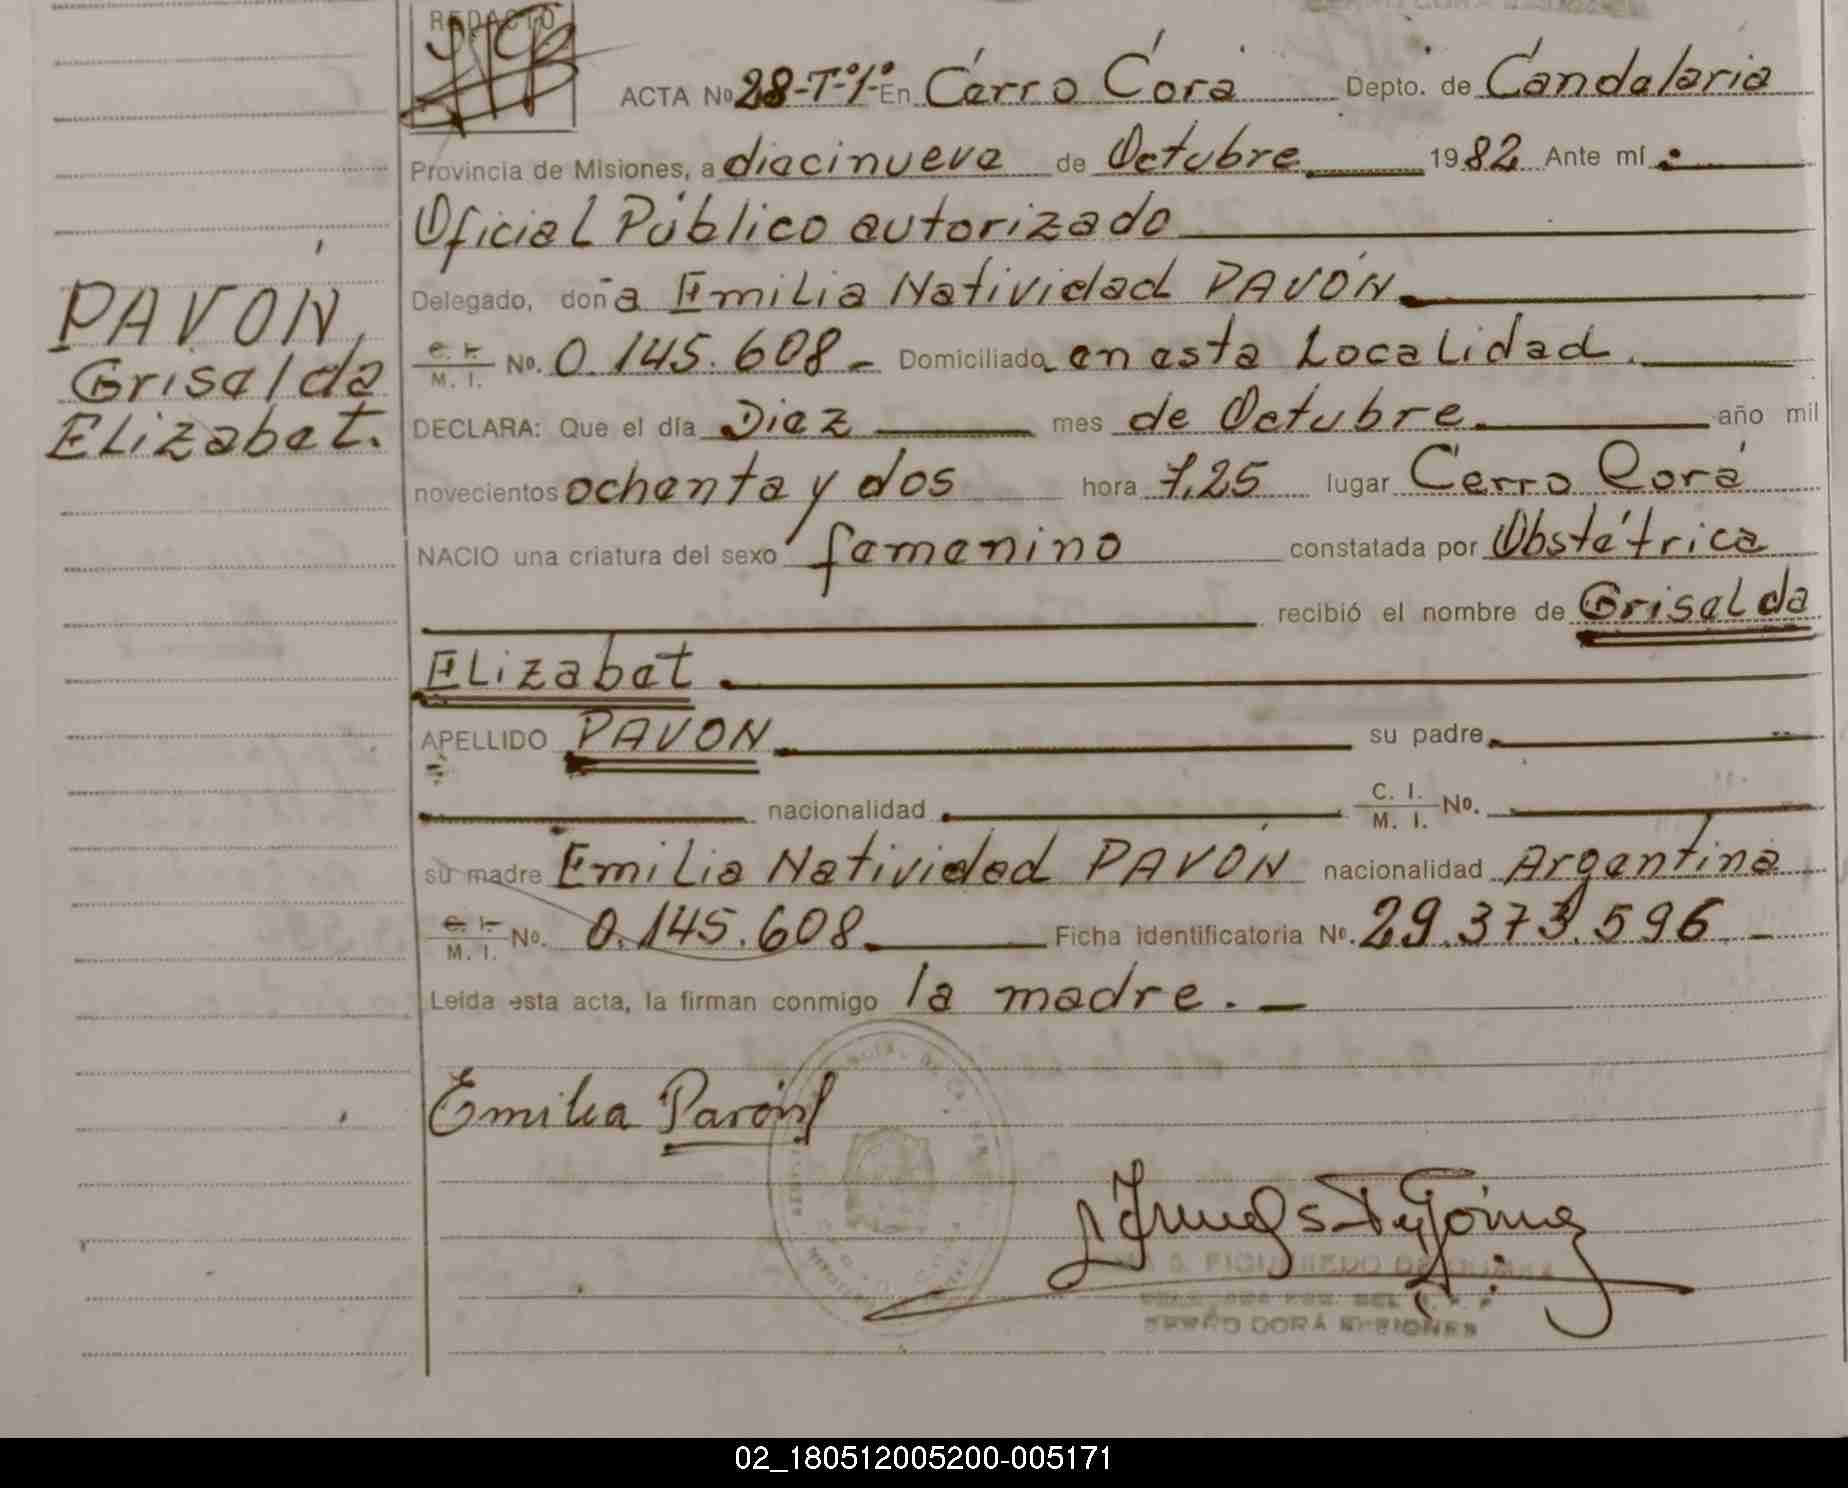 REDACTO
ACTA Nº 28-Tº1º- En Cerro Corá Depto. de Candelaria
Provincia de Misiones, a diecinueve de Octubre 1982 Ante mí
Oficial Público autorizado
Delegado, doña Emilia Natividad PAVÓN
PAVÓN,
C. I. M. I. No. 0.145.608- Domiciliado en esta Localidad.
Griselda
DECLARA: Que el día Diez mes de Octubre. año mil
Elizabet.
novecientos ochenta y dos hora 7,25 lugar Cerro Corá
NACIO una criatura del sexo femenino constatada por Obstétrica
recibió el nombre de Griselda
Elizabet
APELLIDO PAVON su padre
nacionalidad C. I. M. I. No.
su madre Emilia Natividad PAVÓN nacionalidad Argentina
C. I. M. I. No. 0.145.608 Ficha identificatoria Nº. 29.373.596 -
Leída esta acta, la firman conmigo la madre. -
Emilia Pavón
FIGUEREDO DE
CERRO CORÁ MISIONES
02_180512005200-005171